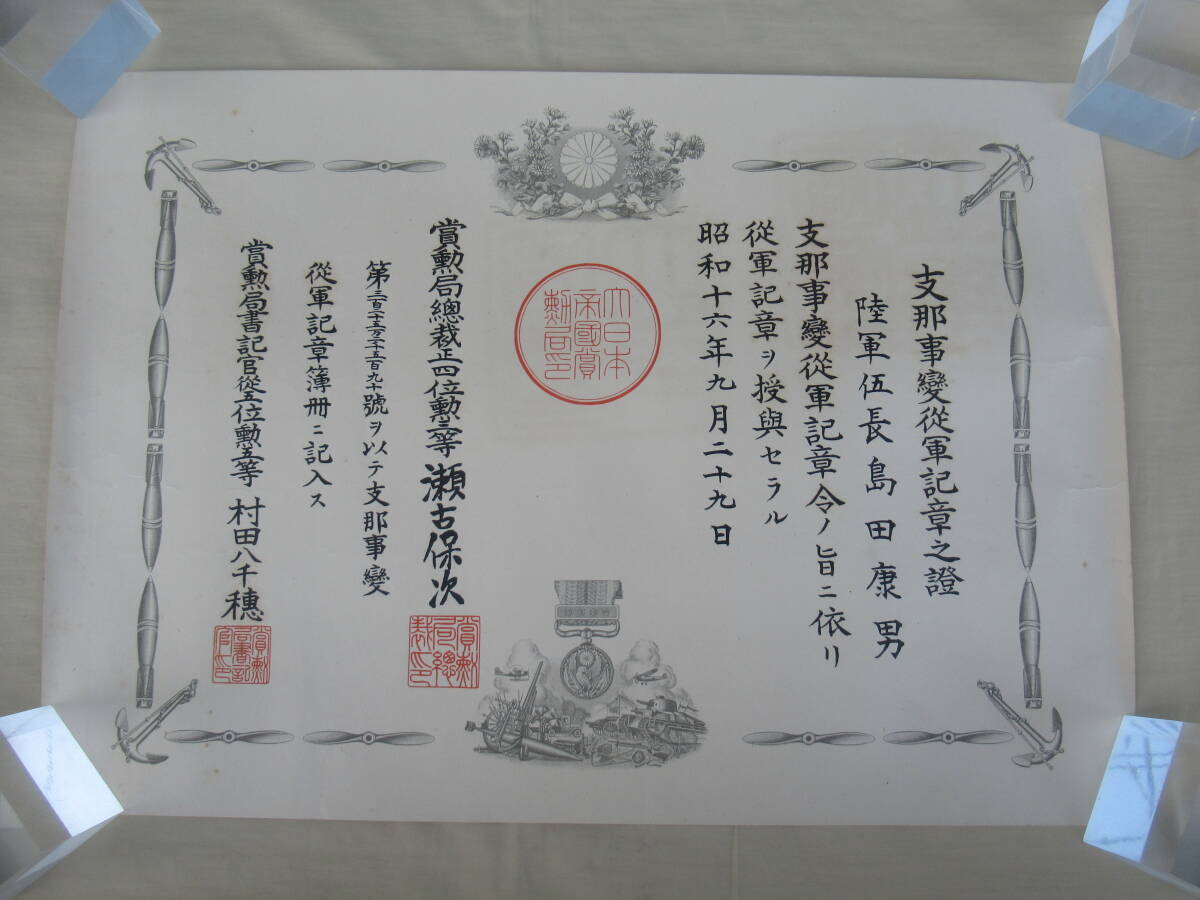 支那事變從軍記章之證
陸軍伍長島田康男
支那事變從軍記章令ノ旨ニ依リ
從軍記章ヲ授與セラル
昭和十六年九月二十九日
大日本
帝國賞
勲局印
賞勲局總裁正四位勲二等瀬古保次
賞勲
局總
裁印
號ヲ以テ支那事變
從軍記章簿冊ニ記入ス
賞勲局書記官從五位勲五等村田八千穗
賞勲
局書記
官印